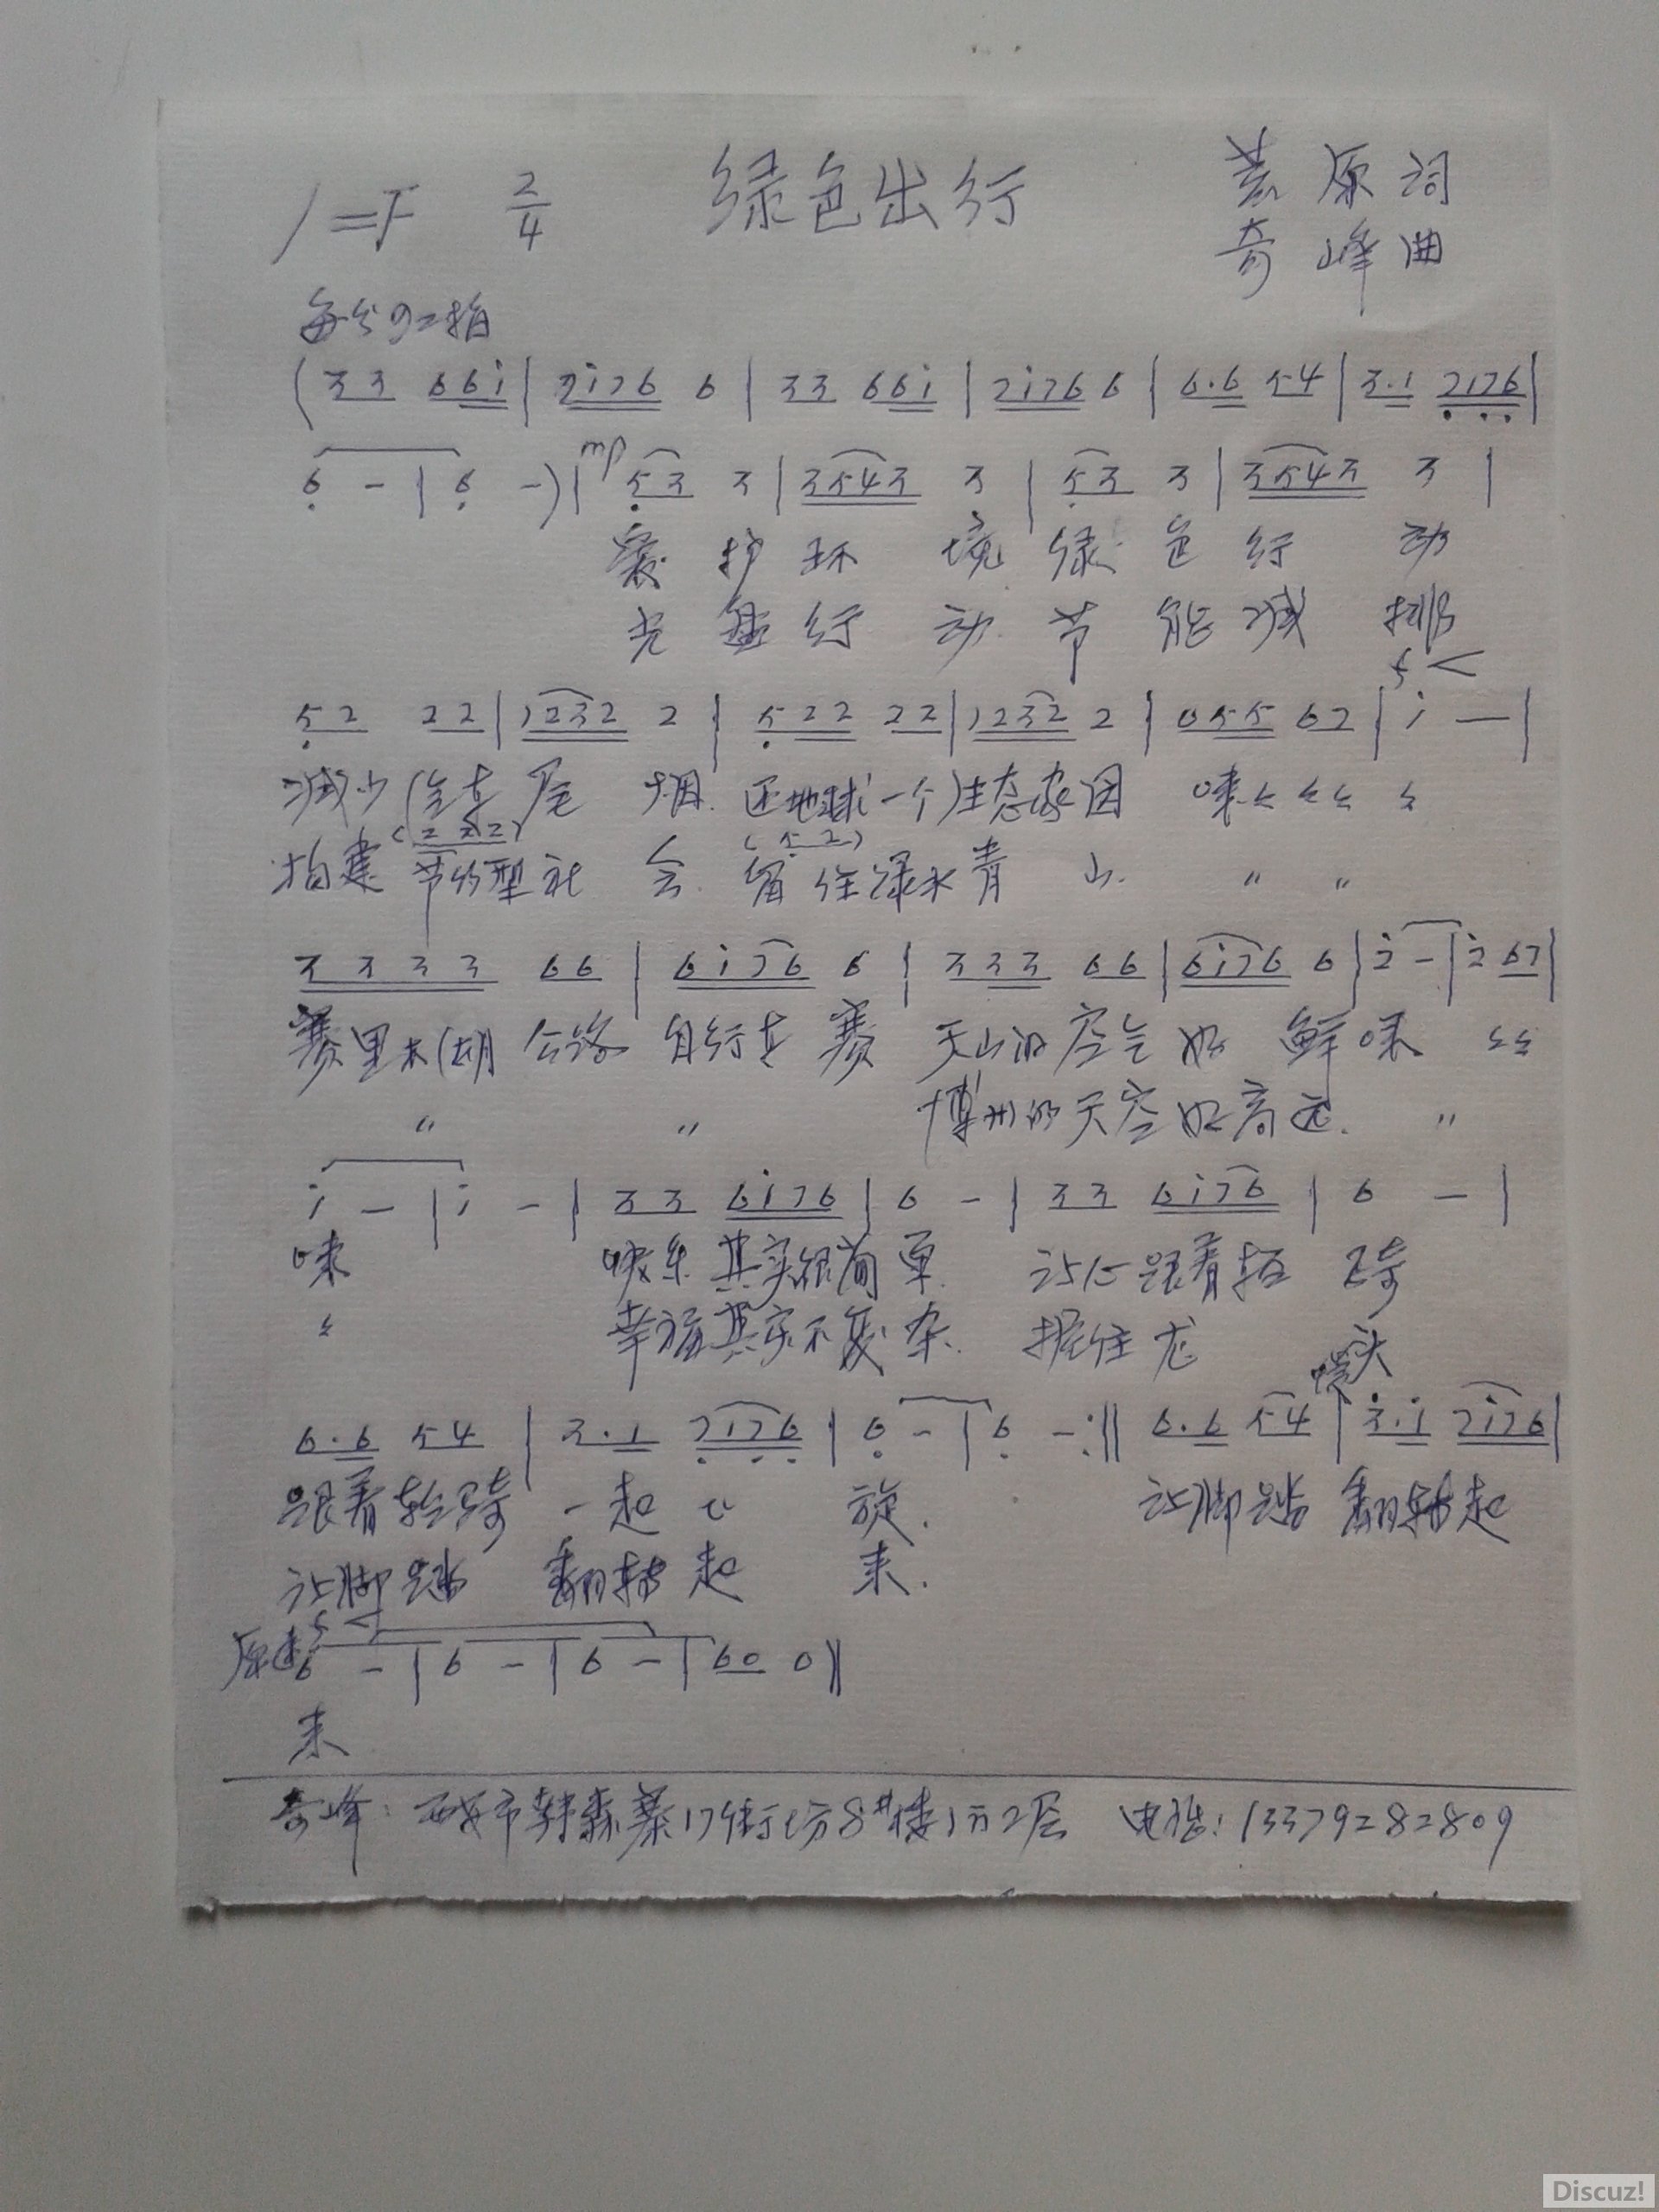 1=F 2/4 绿色出行 原词
奇峰曲
每分92拍
(33 66i | 2i76 6 | 33 66i | 2i76 6 | 6·6 54 | 3·1 7176 |
6 - | 6 -) | mp 53 3 | 3543 3 | 53 3 | 3543 3 |
爱护环境绿色行动
光盘行动节能减排
f <
52 22 | 1232 2 | 522 22 | 1232 2 | 055 67 | i — |
减少汽车尾烟 还地球一个生态家园 来
(222) (52)
构建节约型社会 留住绿水青山 " "
3333 66 | 6i76 6 | 333 66 | 6i76 6 | 2 - | 2 67 |
赛里木湖公路自行车赛 天山的空气好鲜 来
" " 博州的天空好高远. "
i - | i - | 33 6i76 | 6 - | 33 6i76 | 6 - |
来 快乐其实很简单 让心跟着轻骑
幸福其实不复杂. 握住龙头
慢
6·6 54 | 3·1 7176 | 6 - | 6 - :‖ 6·6 54 | 3·i 7i76 |
跟着轻骑一起飞旋. 让脚踏翻转起
让脚踏翻转起来.
f <
原速 6 - | 6 - | 6 - | 60 0 ‖
来
奇峰: 西安市韩森寨17街坊8#楼1门2层 电话: 13379282809
Discuz!